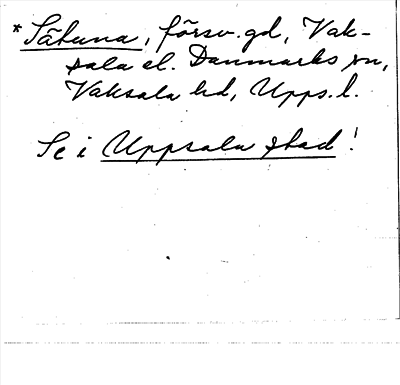 * Sätuna, försv. gd, Vak-
sala el. Danmarks sn,
Vaksala hd, Upps. l.
Se i Uppsala stad!